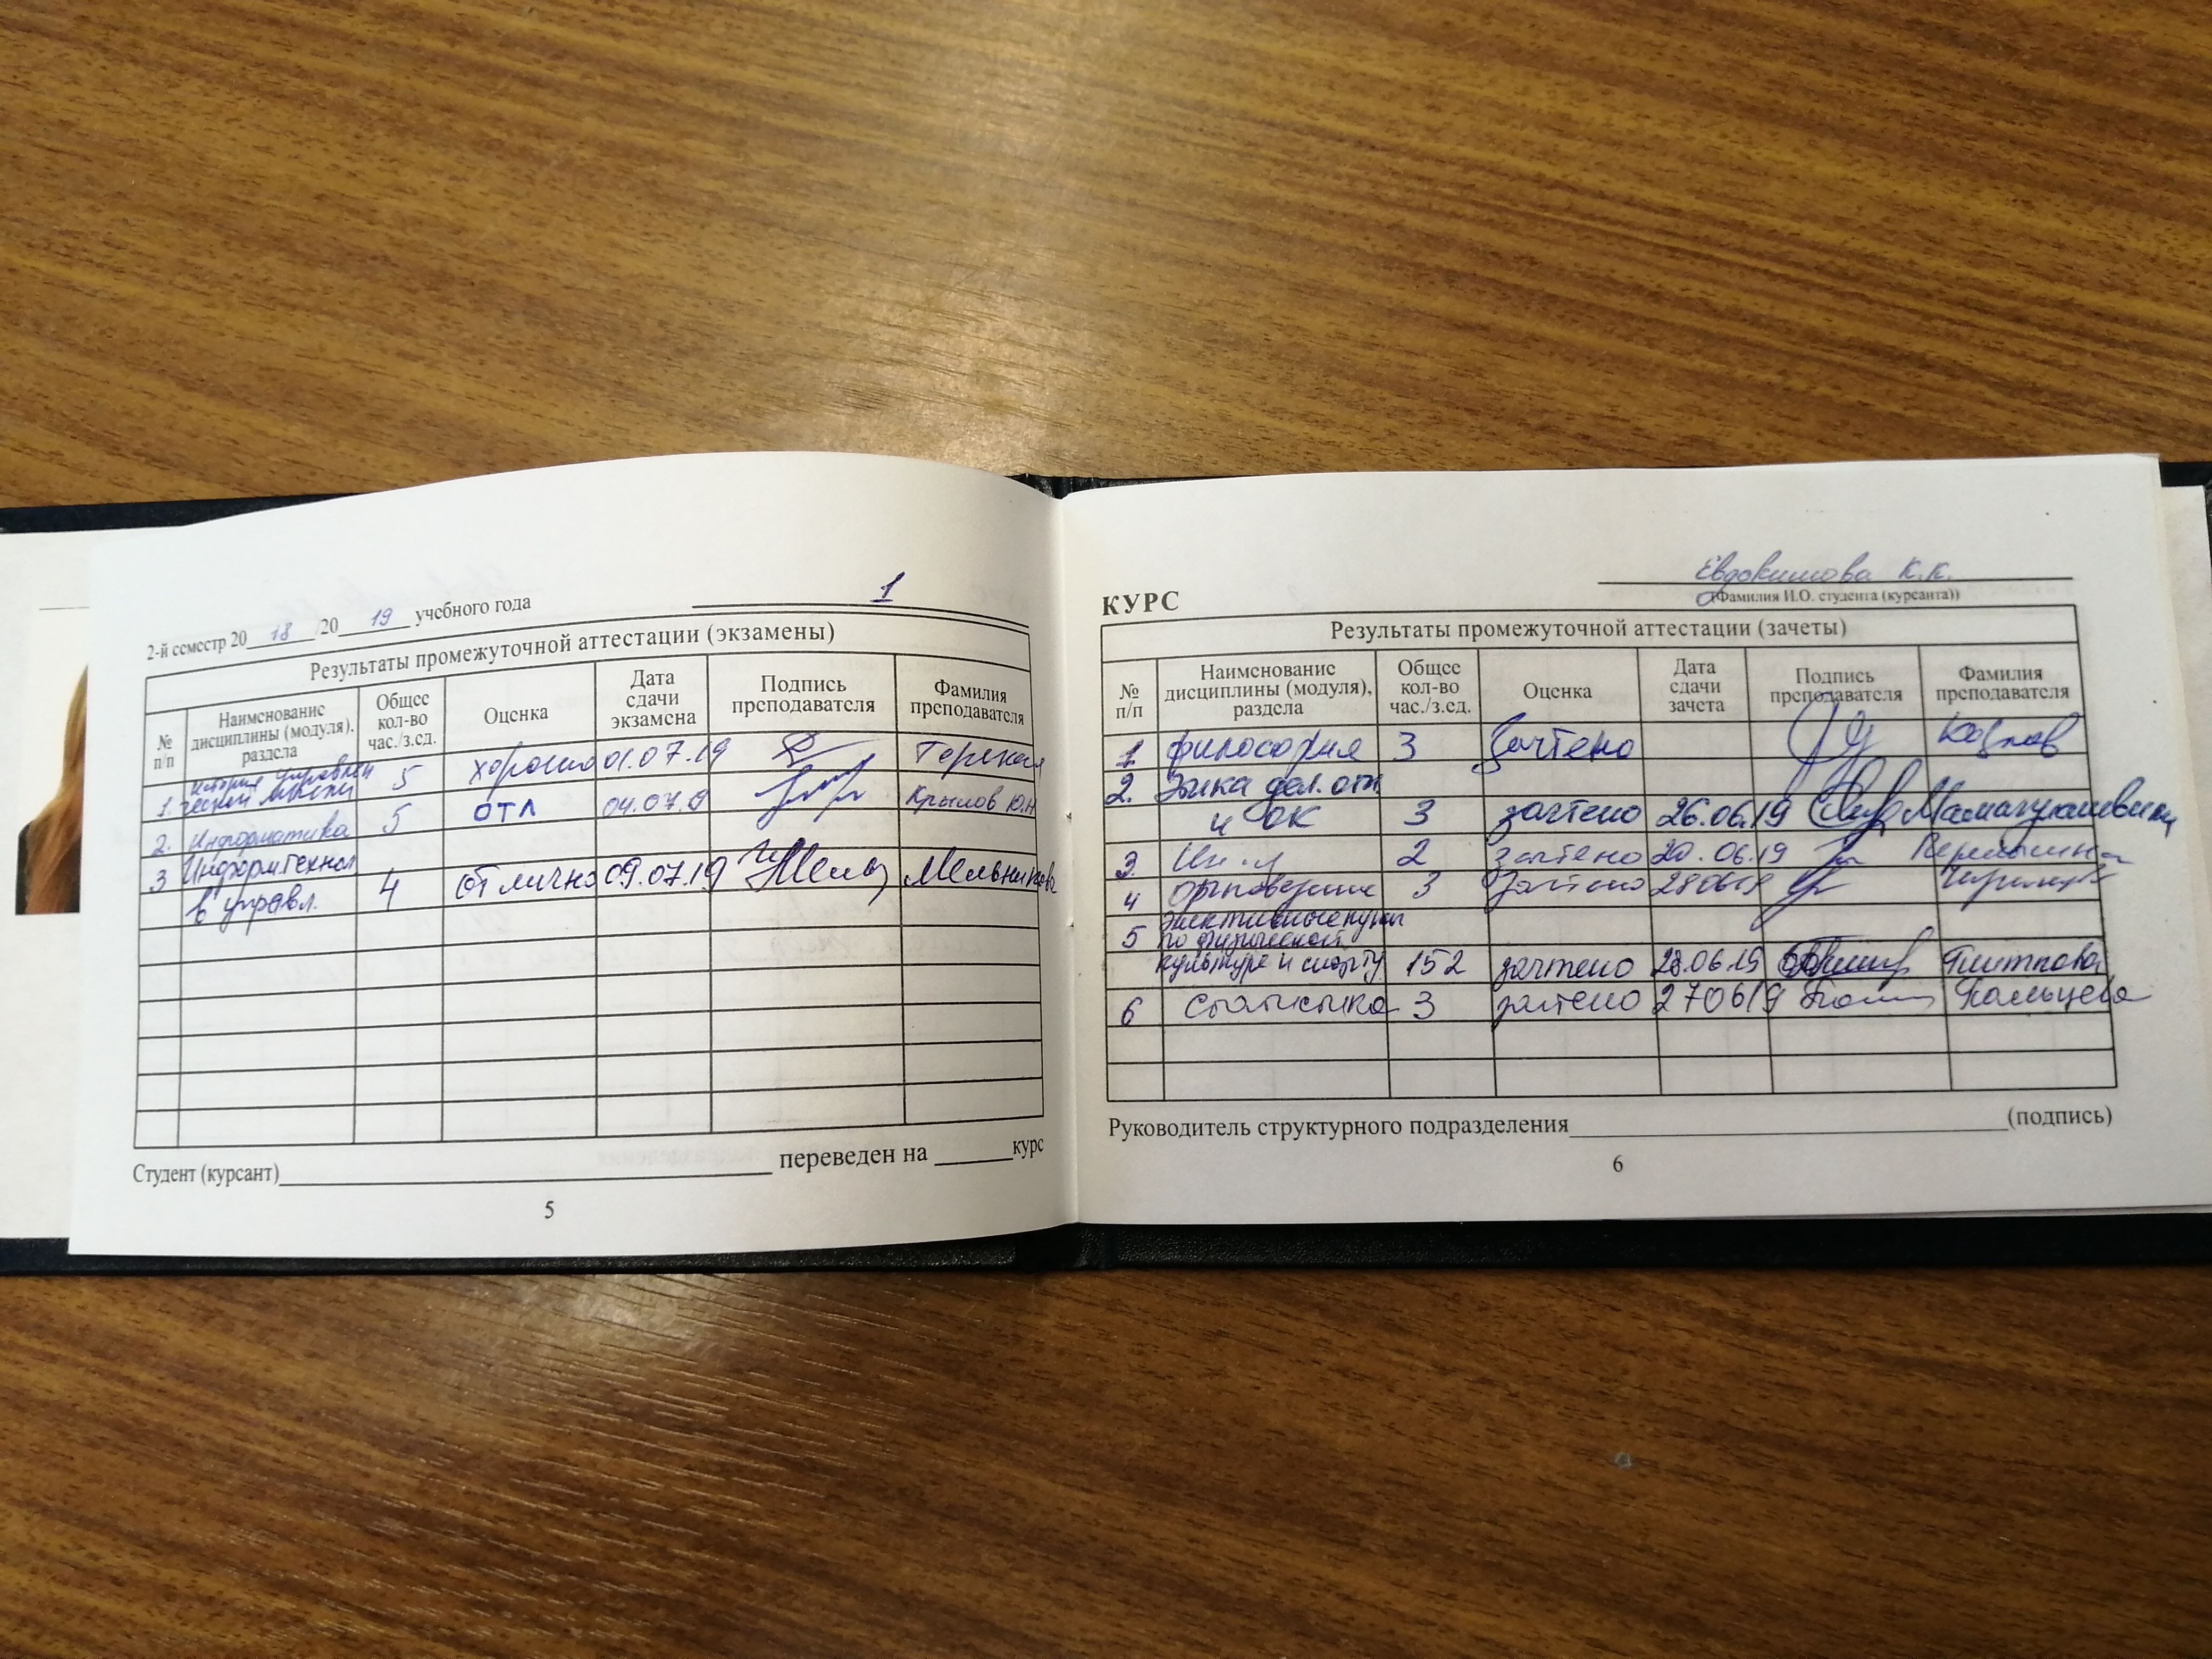 2-й семестр 20 18 /20 19 учебного года 1
Результаты промежуточной аттестации (экзамены)
№ п/п Наименование дисциплины (модуля), раздела Общее кол-во час./з.ед. Оценка Дата сдачи экзамена Подпись преподавателя Фамилия преподавателя
1. 5 хорошо 01.07.19
2. Информатика 5 отл 04.07.19 Крылов Ю.Н
3 Информ.технол
в управл. 4 отлично 09.07.19 Мельникова
Студент (курсант) переведен на курс
5
Евдокимова К.К.
КУРС (Фамилия И.О. студента (курсанта))
Результаты промежуточной аттестации (зачеты)
№ п/п Наименование дисциплины (модуля), раздела Общее кол-во час./з.ед. Оценка Дата сдачи зачета Подпись преподавателя Фамилия преподавателя
1 философия 3 Зачтено Козлов
2. Этика дел. отн.
и ОК 3 зачтено 26.06.19
3. 2 зачтено 20.06.19
4 3 зачтено 280619
5 Элективные курсы
по физической
культуре и спорту 152 зачтено 28.06.19
6 Статистика 3 зачтено 270619 Пальцева
Руководитель структурного подразделения (подпись)
6